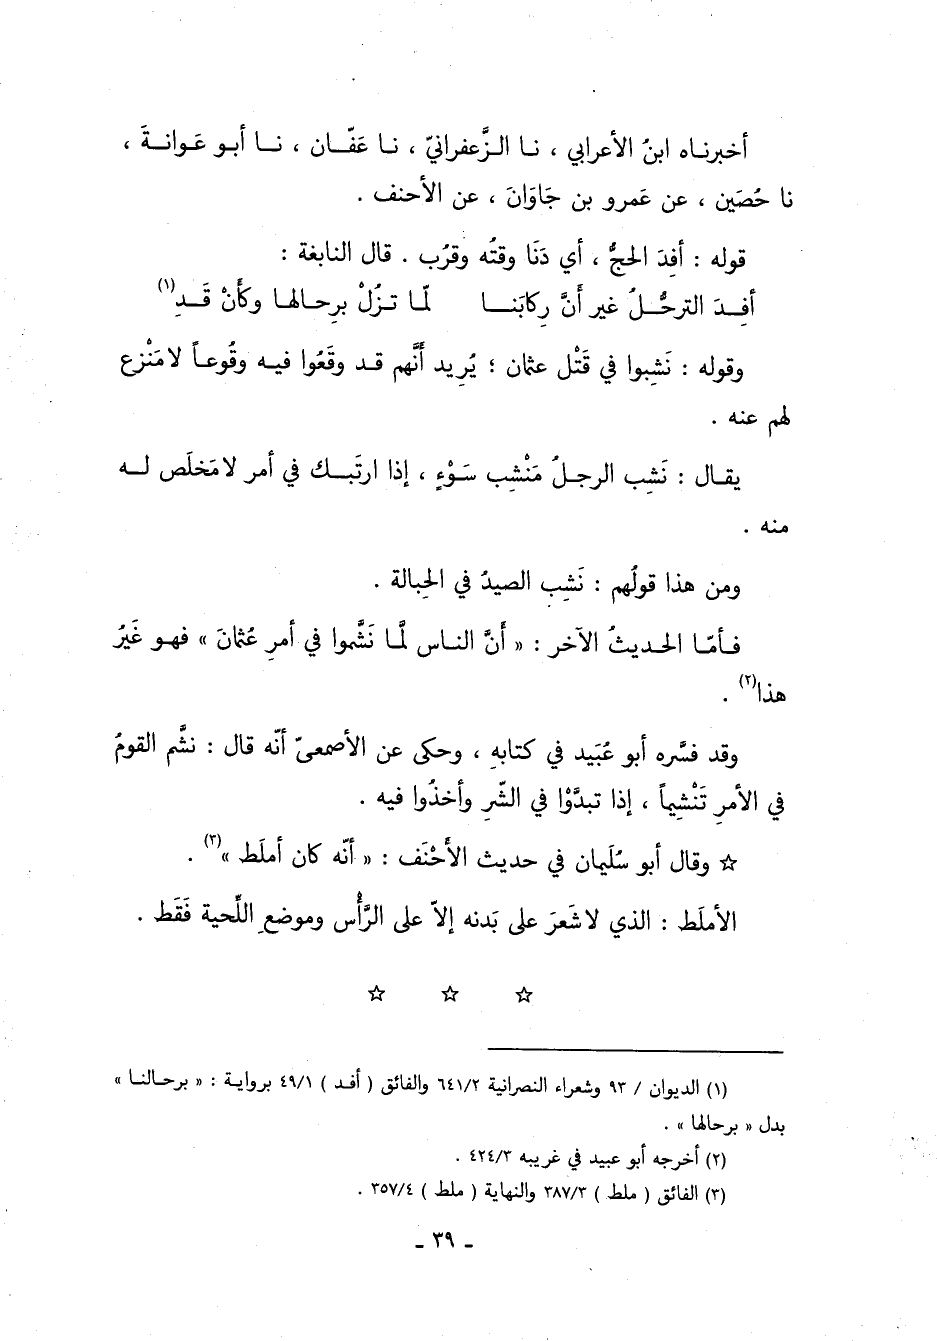 أخبرناه ابنُ الأعرابي ، نـا الـزَّعفرانيّ ، نـا عَفّـان ، نـا أبـو عَـوانـةَ ،
نا حُصَين ، عن عَمرو بن جَاوَانَ ، عن الأحنف .
قوله : أفِدَ الحجُّ ، أي دَنَا وقتُه وقرُب . قال النابغة :
أفِـدَ الترحُّـلُ غير أَنَّ رِكابَنـا لمّـا تـزُلْ بِرحـالها وكأَنْ قَـدِ(١)
وقوله : نَشِبوا في قَتْل عثمان ؛ يُرِيد أَنَّهم قد وقَعُوا فيـه وقُوعـاً لا مَنْزِع
لهم عنه .
يقـال : نَشِب الرجـلُ مَنْشِب سَـوْءٍ ، إذا ارتَبـك في أمر لا مَخلَص لـه
منه .
ومن هذا قولُهم : نَشِب الصيدُ في الحِبالة .
فـأمّـا الحـديثُ الآخر : « أَنَّ النـاس لَمَّـا نَشَّموا في أمرِ عُثمانَ » فهـو غَيرُ
هذا(٢) .
وقد فسَّره أبو عُبَيد في كتابِهِ ، وحكى عن الأصمعىّ أنّه قال : نشَّم القومُ
في الأمرِ تَنْشِيماً ، إذا تبدَّوْا في الشّر وأخذُوا فيه .
☆ وقال أبو سُلَيمان في حديث الأَحْنَف : « أنّه كان أملَط »(٣) .
الأملَط : الذي لا شَعرَ على بَدنه إلاّ على الرَّأْس وموضع اللِّحية فَقَط .
☆ ☆ ☆
(١) الديوان / ٩٣ وشعراء النصرانية ٦٤١/٢ والفائق ( أفـد ) ٤٩/١ بروايـة : « برحـالنـا »
بدل « برحالها » .
(٢) أخرجه أبو عبيد في غريبه ٤٢٤/٣ .
(٣) الفائق ( ملط ) ٣٨٧/٣ والنهاية ( ملط ) ٣٥٧/٤ .
ـ ٣٩ ـ